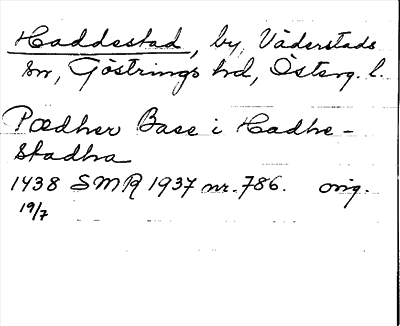 Haddestad, by, Väderstads
sn, Göstrings hd, Österg. l.
Pædher Base i Hadhe-
stadha
1438 SMR 1937 nr. 786. orig.
19/7